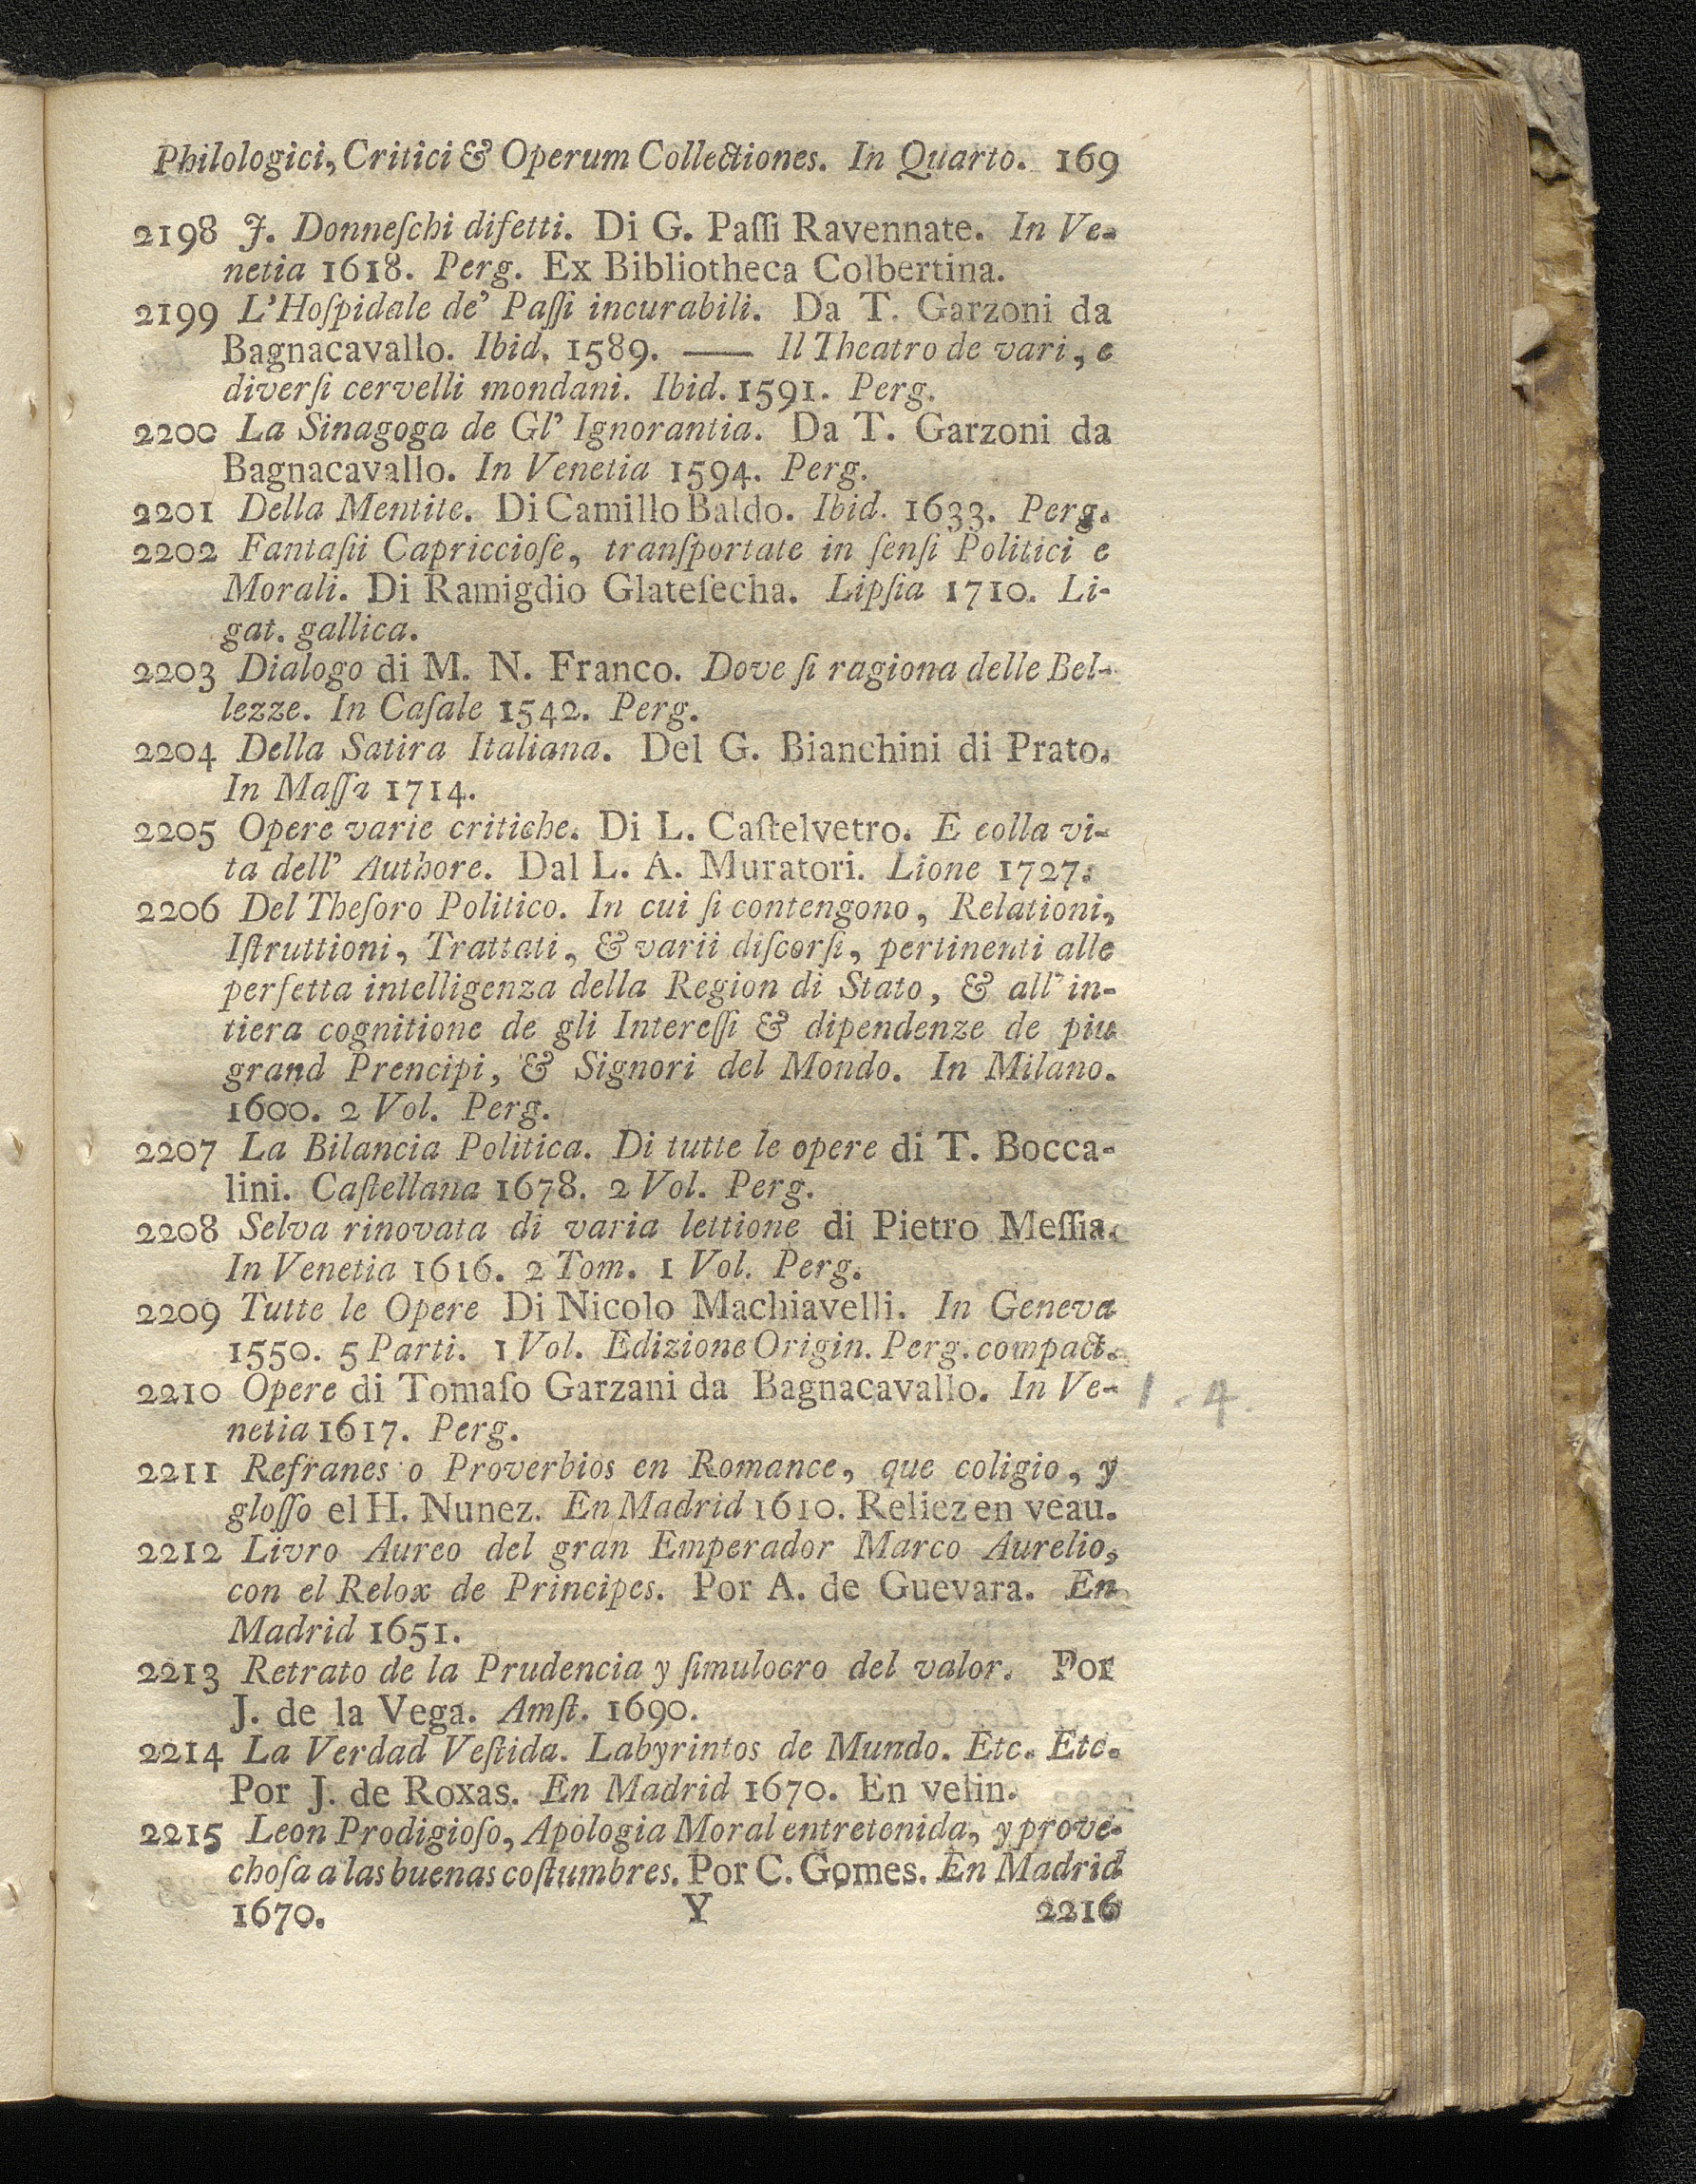 Philologici, Critici & Operum Collectiones. In Quarto. 169
2198 J. Donneſchi difetti. Di G. Paſſi Ravennate. In Ve-
netia 1618. Perg. Ex Bibliotheca Colbertina.
2199 L'Hoſpidale de' Paſſi incurabili. Da T. Garzoni da
Bagnacavallo. Ibid. 1589. —— Il Theatro de vari, e
diverſi cervelli mondani. Ibid. 1591. Perg.
2200 La Sinagoga de Gl' Ignorantia. Da T. Garzoni da
Bagnacavallo. In Venetia 1594. Perg.
2201 Della Mentite. Di Camillo Baldo. Ibid. 1633. Perg.
2202 Fantaſii Capriccioſe, tranſportate in ſenſi Politici e
Morali. Di Ramigdio Glateſecha. Lipſia 1710. Li-
gat. gallica.
2203 Dialogo di M. N. Franco. Dove ſi ragiona delle Bel-
lezze. In Caſale 1542. Perg.
2204 Della Satira Italiana. Del G. Bianchini di Prato.
In Maſſa 1714.
2205 Opere varie critiche. Di L. Caſtelvetro. E colla vi-
ta dell' Authore. Dal L. A. Muratori. Lione 1727.
2206 Del Theſoro Politico. In cui ſi contengono, Relationi,
Iſtruttioni, Trattati, & varii diſcorſi, pertinenti alle
perfetta intelligenza della Region di Stato, & all' in-
tiera cognitione de gli Intereſſi & dipendenze de piu
grand Prencipi, & Signori del Mondo. In Milano.
1600. 2 Vol. Perg.
2207 La Bilancia Politica. Di tutte le opere di T. Bocca-
lini. Caſtellana 1678. 2 Vol. Perg.
2208 Selva rinovata di varia lettione di Pietro Meſſia.
In Venetia 1616. 2 Tom. 1 Vol. Perg.
2209 Tutte le Opere Di Nicolo Machiavelli. In Geneva
1550. 5 Parti. 1 Vol. Edizione Origin. Perg. compact.
2210 Opere di Tomaſo Garzani da Bagnacavallo. In Ve- 1.4.
netia 1617. Perg.
2211 Refranes o Proverbios en Romance, que coligio, y
gloſſo el H. Nunez. En Madrid 1610. Reliez en veau.
2212 Livro Aureo del gran Emperador Marco Aurelio,
con el Relox de Principes. Por A. de Guevara. En
Madrid 1651.
2213 Retrato de la Prudencia y ſimulocro del valor. Por
J. de la Vega. Amſt. 1690.
2214 La Verdad Veſtida. Labyrintos de Mundo. Etc. Etc.
Por J. de Roxas. En Madrid 1670. En velin.
2215 Leon Prodigioſo, Apologia Moral entretenida, y prove-
choſa a las buenas coſtumbres. Por C. Gomes. En Madrid
1670. Y 2216